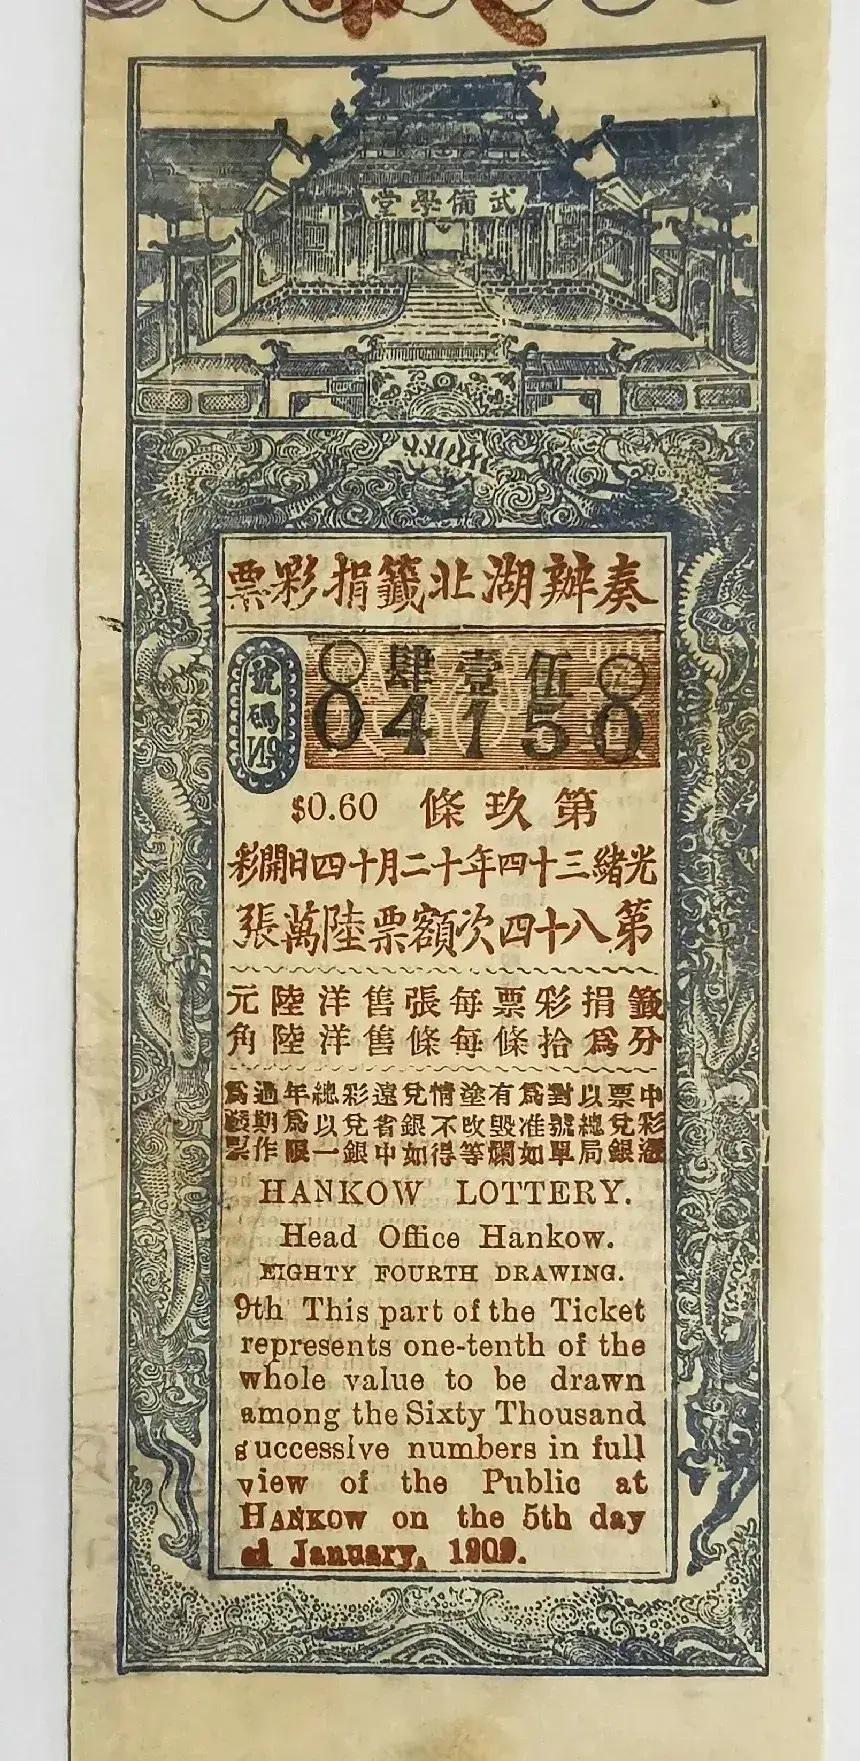 武備學堂
奏辦湖北籤捐彩票
號碼№
〇肆壹伍〇
04150
第玖條 $0.60
光緒三十四年十二月十四日開彩
第八十四次額票陸萬張
籤捐彩票每張售洋陸元
分為拾條每條售洋陸角
中彩憑票兌銀以總局對號單為准如有毀爛塗改等情不得兌銀如遠省中彩兌銀總以一年為限過期作為廢票
HANKOW LOTTERY.
Head Office Hankow.
EIGHTY FOURTH DRAWING.
9th This part of the Ticket
represents one-tenth of the
whole value to be drawn
among the Sixty Thousand
successive numbers in full
view of the Public at
HANKOW on the 5th day
of January, 1909.